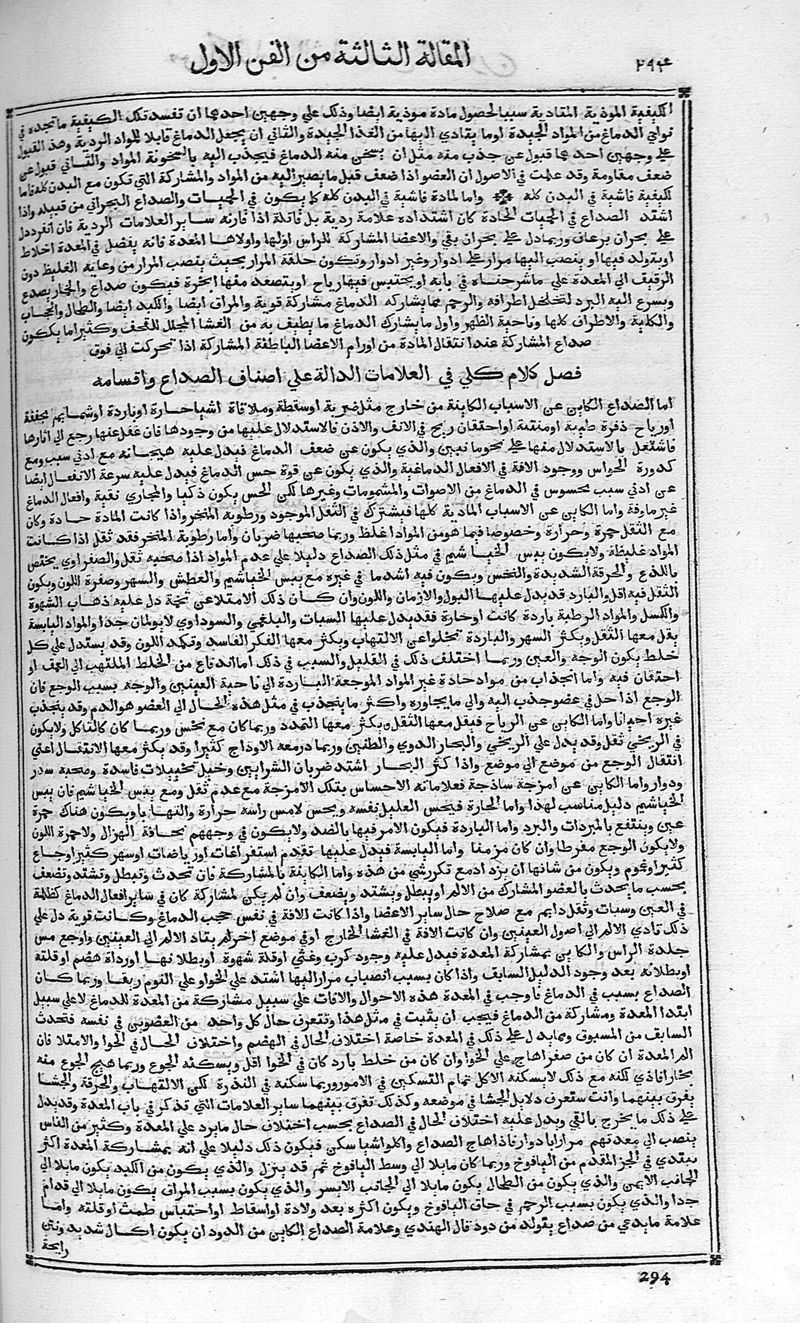 ٢٩٤ المقالة الثالثة من الفن الاول
الكيفية الموذية المتقادية سببا لحصول مادة موذية ايضا وذلك علي وجهين احدهما ان تفسد تلك الكيفية ما تجده في
نواي الدماغ من المواد الجيدة اوما يتقادي اليها من الغذا الجيدة والثاني ان يجعل الدماغ قابلا للمواد الردية وهذا القبول
علي وجهين احدهما قبول عن جذب منه مثل ان يسخن منه الدماغ فيجذب اليه بالسخونة المواد والثاني قبول عن
ضعف مقاومة وقد علمت في الاصول ان العضو اذا ضعف قبل ما يصير اليه من المواد والمشاركة التي تكون مع البدن كله فاما
لكيفية فاشية في البدن كله واما لمادة فاشية في البدن كله كما يكون في الحميات والصداع البحراني من قبيله واذا
اشتد الصداع في الحميات الحادة كان اشتداده علامة ردية بل قاتلة اذا قارنه ساير العلامات الردية فان انفرد دل
علي بحران برعاف وربما دل علي بحران بقي والاعضا المشاركة للراس اولها واولاها المعدة فانه يفضل في المعدة اخلاط
او يتولد فيها او ينصب اليها مرار علي ادوار وغير ادوار وتكون خلقة المرار بحيث ينصب المرار من وعايه الغليظ دون
الرقيق الي المعدة علي ما شرحناه في بابه او يحتبس فيها رياح او يتصعد منها ابخرة فيكون صداع والخمار يصدع
ويسرع اليه البرد لتخلخل اطرافه والرحم مما يشاركه الدماغ مشاركة قوية والمراق ايضا والكبد ايضا والطحال والحجاب
والكلية والاطراف كلها وناحية الظهر واول ما يشارك الدماغ ما يطيف به من الغشا المجلل للقحف وكثيرا ما يكون
صداع المشاركة عند انتقال المادة من اورام الاعضا الباطنة المشاركة اذا تحركت الي فوق
فصل كلام كلي في العلامات الدالة علي اصناف الصداع واقسامه
اما الصداع الكاين عن الاسباب الكاينة من خارج مثل ضربة او سقطة وملاقاة اشيا حارة او باردة او شمايم مجففة
او رياح ذفرة طيبة او منتنة او احتقان ريح في الانف والاذن فالاستدلال عليها من وجودها فان غفل عنها رجع الي اثارها
فاشتغل بالاستدلال منها علي نحو ما نبين والذي يكون عن ضعف الدماغ فيدل عليه هيجانه مع ادني سبب ومع
كدورة الحواس ووجود الافة في الافعال الدماغية والذي يكون عن قوة حس الدماغ فيدل عليه سرعة الانفعال ايضا
عن ادني سبب محسوس في الدماغ من الاصوات والمشمومات وغيرها لكن الحس يكون ذكيا والمجاري نقية وافعال الدماغ
غير ماوفة واما الكاين عن الاسباب المادية كلها فيشترك في الثقل الموجود ورطوبة المنخر واذا كانت المادة حادة وكان
مع الثقل حمرة وحرارة وخصوصا فيما هو من المواد اغلظ وربما صحبها ضربان واما رطوبة المنخر فقد تقل اذا كانت
المواد غليظة ولا يكون يبس الخياشيم في مثل ذلك الصداع دليلا علي عدم المواد اذا صحبه ثقل والصفراوي يختص
باللذع والحرقة الشديدة والنخس ويكون فيه اشد ما في غيره مع يبس الخياشيم والعطش والسهر وصفرة اللون ويكون
الثقل فيه اقل والبارد قد يدل عليها البول والازمان واللون وان كان ذلك الامتلا عن تخمة دل عليه ذهاب الشهوة
والكسل والمواد الرطبة باردة كانت او حارة فقد يدل عليها السبات والبلغمي والسوداوي لا يولمان جدا والمواد اليابسة
يقل معها الثقل ويكثر السهر والباردة تخلوا عن الالتهاب ويكثر معها الفكر الفاسد وتكمد اللون وقد يستدل علي كل
خلط بكون الوجه والعين وربما اختلف ذلك في القليل والسبب في ذلك اما اندفاع من الخلط الملتهب الي العمق او
احتقان فيه واما انجذاب من مواد حادة غير المواد الموجعة الباردة الي ناحية العينين والوجه بسبب الوجع فان
الوجع اذا حل في عضو جذب اليه والي ما يجاوره واكثر ما ينجذب في مثل هذه الحال الي العضو هو الدم وقد ينجذب
غيره احيانا واما الكاين عن الرياح فيقل معها الثقل ويكثر معها التمدد وربما كان مع نخس وربما كان كالتاكل ولا يكون
في الريحي ثقل وقد يدل علي الريحي والبخار الدوي والطنين وربما در معه الاوداج كثيرا وقد يكثر معها الانتقال اعني
انتقال الوجع من موضع الي موضع واذا كثر البخار اشتد ضربان الشرايين وخيل تخييلات فاسدة وصحبه سدر
ودوار واما الكاين عن امزجة ساذجة فعلاماته الاحساس بتلك الامزجة مع عدم ثقل ومع يبس الخياشيم فان يبس
الخياشيم دليل مناسب لهذا واما الحارة فيحس العليل نفسه ويحس لامس راسه حرارة والتهابا ويكون هناك حمرة
عين وينتفع بالمبردات والبرد واما الباردة فيكون الامر فيها بالضد ولا يكون في وجههم نحافة الهزال ولا حمرة اللون
ولا يكون الوجع مفرطا وان كان مزمنا واما اليابسة فيدل عليها تقدم استفراغات او رياضات او سهر كثير او جماع
كثير او غموم ويكون من شانها ان يزداد مع تكرر شي من هذه واما الكاينة بالمشاركة فان تحدث وتبطل وتشتد وتضعف
بحسب ما يحدث بالعضو المشارك من الالم او يبطل ويشتد ويضعف وان لم يكن لمشاركة كان في ساير افعال الدماغ كظلمة
في العين وسبات وثقل دايم مع صلاح حال ساير الاعضا واذا كانت الافة في نفس حجب الدماغ وكانت قوية دل علي
ذلك تادي الالم الي اصول العينين وان كانت الافة في الغشا الخارج او في موضع اخر لم يتاد الالم الي العينين واوجع مس
جلدة الراس والكاين بمشاركة المعدة فيدل عليه وجود كرب وغثي او قلة شهوة او بطلانها او رداة هضم او قلته
او بطلانه بعد وجود الدليل السابق واذا كان بسبب انصباب مرار اليها اشتد علي الخوا وعلي النوم ريقا وربما كان
الصداع بسبب في الدماغ فاوجب في المعدة هذه الاحوال والافات علي سبيل مشاركة من المعدة للدماغ لا علي سبيل
ابتدا المعدة ومشاركة من الدماغ فيجب ان يثبت في مثل هذا وتتعرف حال كل واحد من العضوين في نفسه فتحدث
السابق من المسبوق ومما يدل علي ذلك في المعدة خاصة اختلاف الحال في الهضم واختلاف الحال في الخوا والامتلا فان
الم المعدة ان كان من صفرا هاج علي الخوا وان كان من خلط بارد كان في الخوا اقل ويسكنه الجوع وربما هيج الجوع منه
بخارا فاذي لكنه مع ذلك لا يسكنه الاكل تمام التسكين في الامور وربما سكنه في الندرة لكن الالتهاب والحرقة والجشا
يفرق بينهما وانت ستعرف دلايل الجشا في موضعه وكذلك تفرق بينهما ساير العلامات التي تذكر في باب المعدة وقد يدل
علي ذلك ما يخرج بالقي ويدل عليه اختلاف الحال في الصداع بحسب اختلاف حال ما يرد علي المعدة وكثير من الناس
ينصب الي معدتهم مرار بادوار فاذا هاج الصداع واكلوا شيا سكن فيكون ذلك دليلا علي انه بمشاركة المعدة اكثر
يبتدي في الجز المقدم من اليافوخ وربما كان مايلا الي وسط اليافوخ ثم قد ينزل والذي يكون من الكبد يكون مايلا الي
الجانب الايمن والذي يكون من الطحال يكون مايلا الي الجانب الايسر والذي يكون بسبب المراق يكون مايلا الي قدام
جدا والذي يكون بسبب الرحم في حاق اليافوخ ويكون اكثره بعد ولادة او اسقاط او احتباس طمث او قلته واما
علامة ما يدعي من صداع يتولد من دود قال الهندي وعلامة الصداع الكاين من الدود ان يكون اكال شديد ونتن
رايحة
294